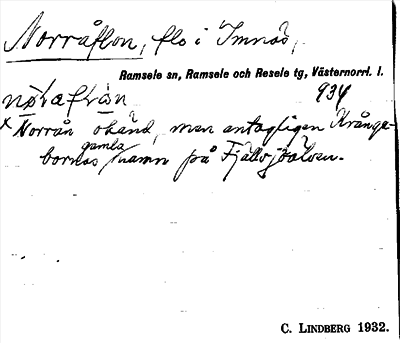 Norråflon, flo i Imnäs,
Ramsele sn, Ramsele och Resele tg, Västernorrl. l.
934
x Norrån okänd, men antagligen Krånge-
bornas gamla namn på Fjällsjöälven.
C. LINDBERG 1932.